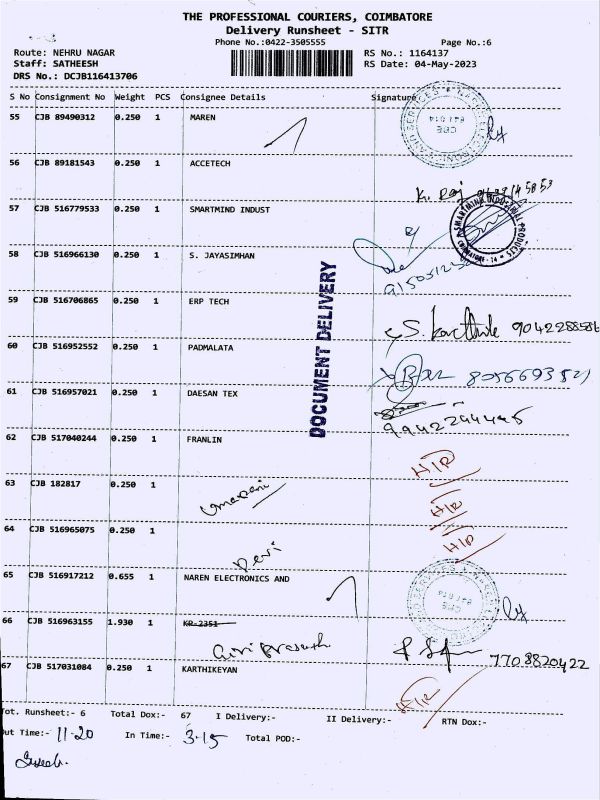 THE PROFESSIONAL COURIERS, COIMBATORE
Delivery Runsheet - SITR
Phone No.:0422-3505555 Page No.:6
Route: NEHRU NAGAR RS No.: 1164137
Staff: SATHEESH RS Date: 04-May-2023
DRS No.: DCJB116413706
S No Consignment No Weight PCS Consignee Details Signature
55 CJB 89490312 0.250 1 MAREN
56 CJB 89181543 0.250 1 ACCETECH
K. Raj
57 CJB 516779533 0.250 1 SMARTMIND INDUST
58 CJB 516966130 0.250 1 S. JAYASIMHAN
59 CJB 516706865 0.250 1 ERP TECH
DOCUMENT DELIVERY
S. Karthik 9042288586
60 CJB 516952552 0.250 1 PADMALATA
61 CJB 516957021 0.250 1 DAESAN TEX
9942294495
62 CJB 517040244 0.250 1 FRANLIN
H/R
63 CJB 182817 0.250 1
Umarani
H/R
64 CJB 516965075 0.250 1
Devi
H/R
65 CJB 516917212 0.655 1 NAREN ELECTRONICS AND
66 CJB 516963155 1.930 1 KR-2351
Giri Prasath
7708820422
67 CJB 517031084 0.250 1 KARTHIKEYAN
H/R
Tot. Runsheet:- 6 Total Dox:- 67 I Delivery:- II Delivery:- RTN Dox:-
Out Time:- 11-20 In Time:- 3-15 Total POD:-